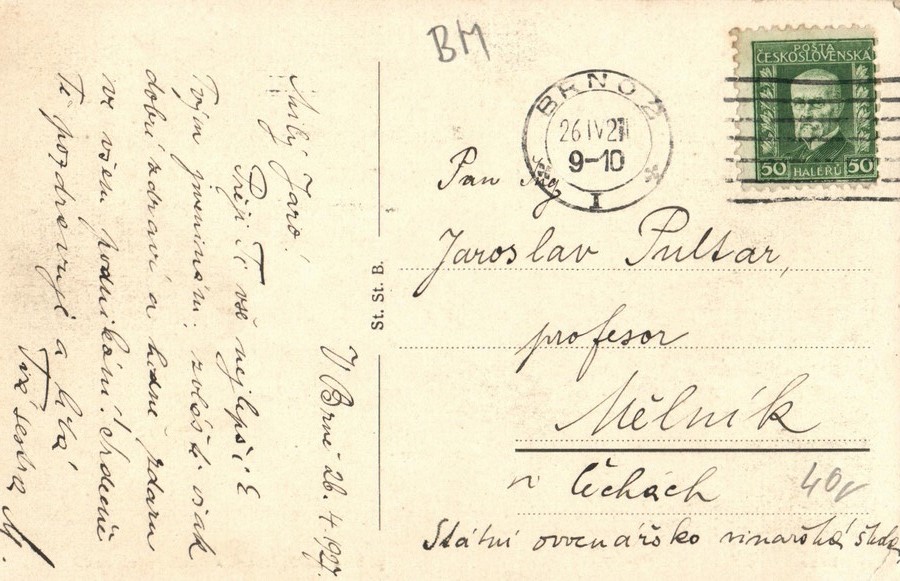 BM
POŠTA
ČESKOSLOVENSKÁ
50 HALÉŘŮ 50
BRNO 2
26 IV 27
9-10
I
V Brně 26. 4. 1927.
Milý Jaro!
Přeji Ti vše nejlepší k
Tvým jmeninám: zvláště však
dobré zdraví a hodně zdaru
ve všem podnikání! Srdečně
Tě pozdravuje a líbá
Tvá sestra M.
St. St. B.
Pan Ing
Jaroslav Pultar,
profesor
Mělník
v Čechách
Státní ovocnářsko vinařská škola
40,-